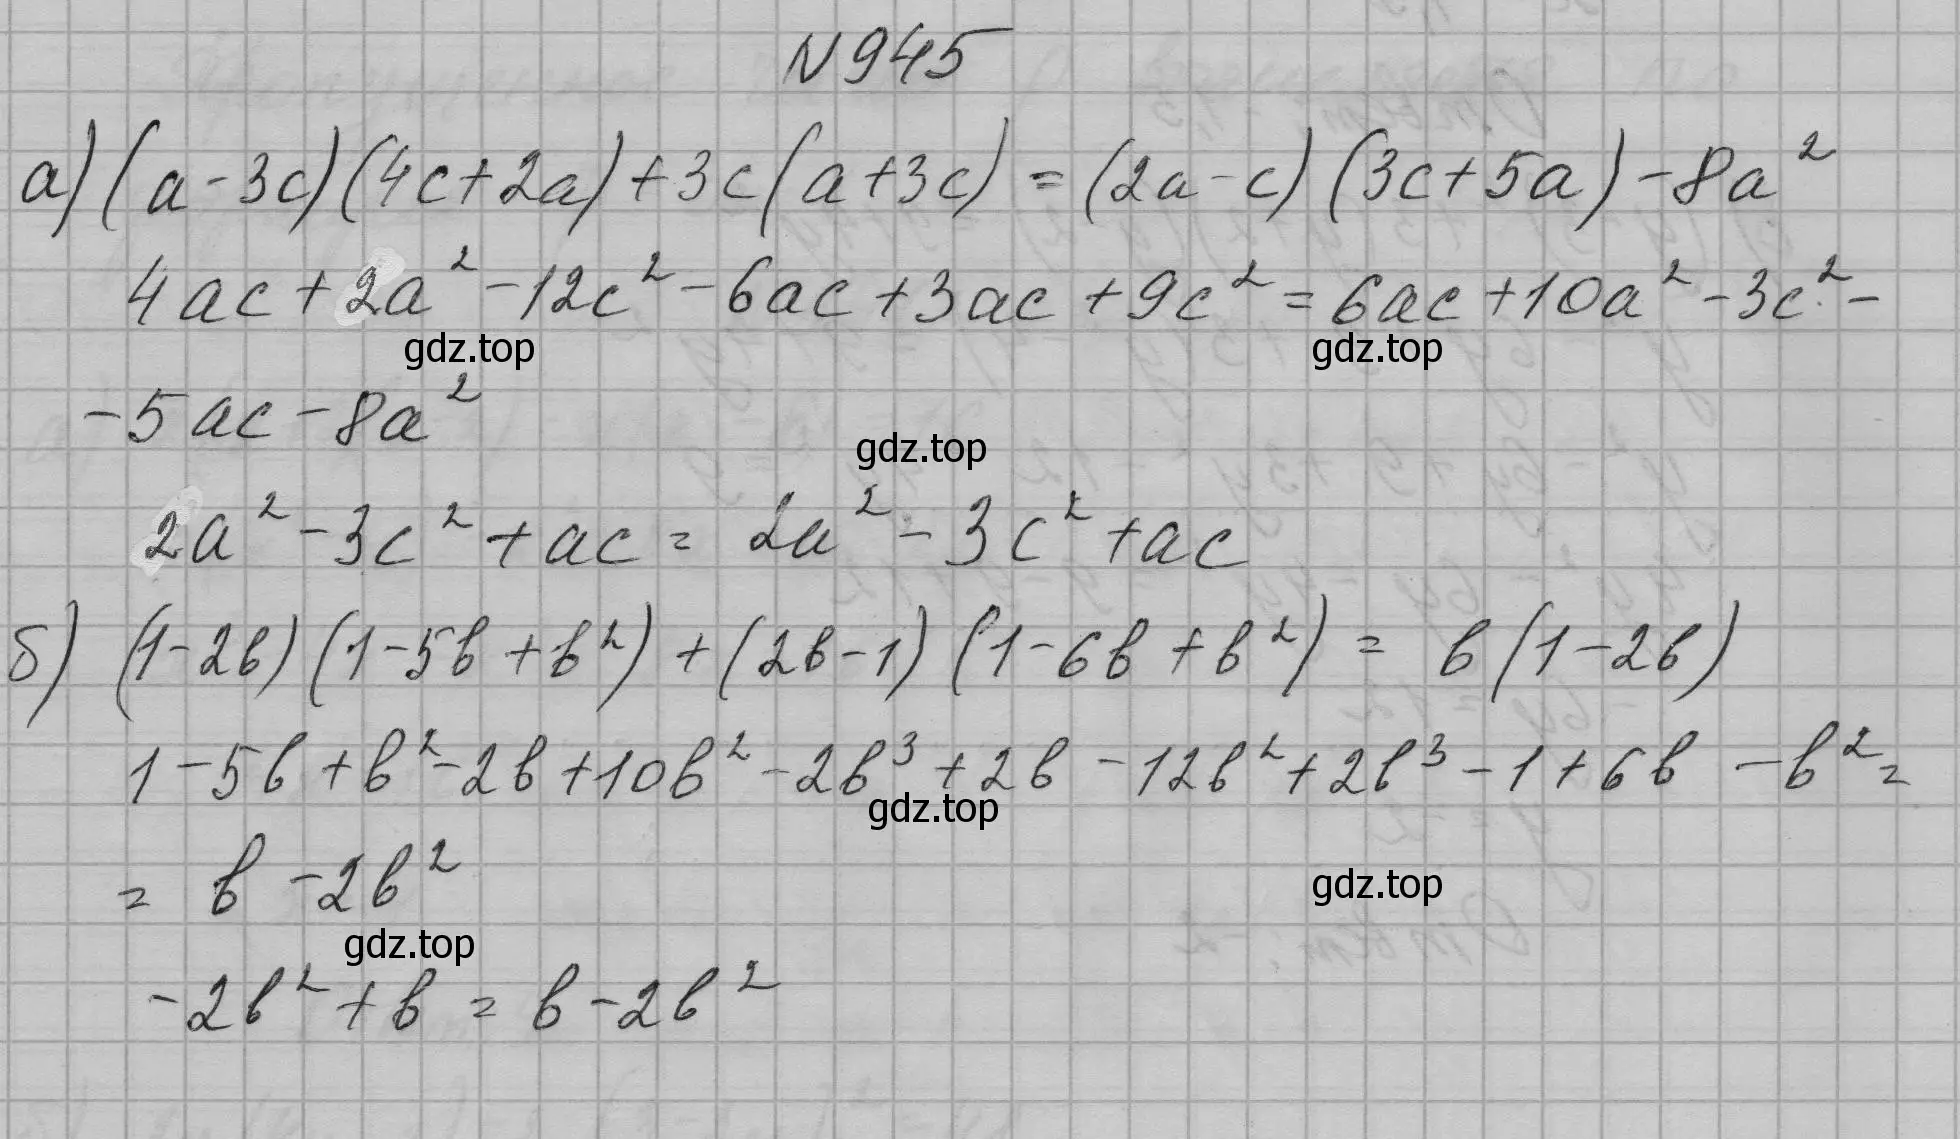 N945
а) (a-3c)(4c+2a)+3c(a+3c) = (2a-c)(3c+5a)-8a²
4ac+2a²-12c²-6ac+3ac+9c² = 6ac+10a²-3c²-
gdz.top gdz.top
-5ac-8a²
gdz.top
2a²-3c²+ac = 2a²-3c²+ac
б) (1-2b)(1-5b+b²)+(2b-1)(1-6b+b²) = b(1-2b)
1-5b+b²-2b+10b²-2b³+2b-12b²+2b³-1+6b-b²=
gdz.top
= b-2b²
gdz.top
gdz.top
-2b²+b = b-2b²